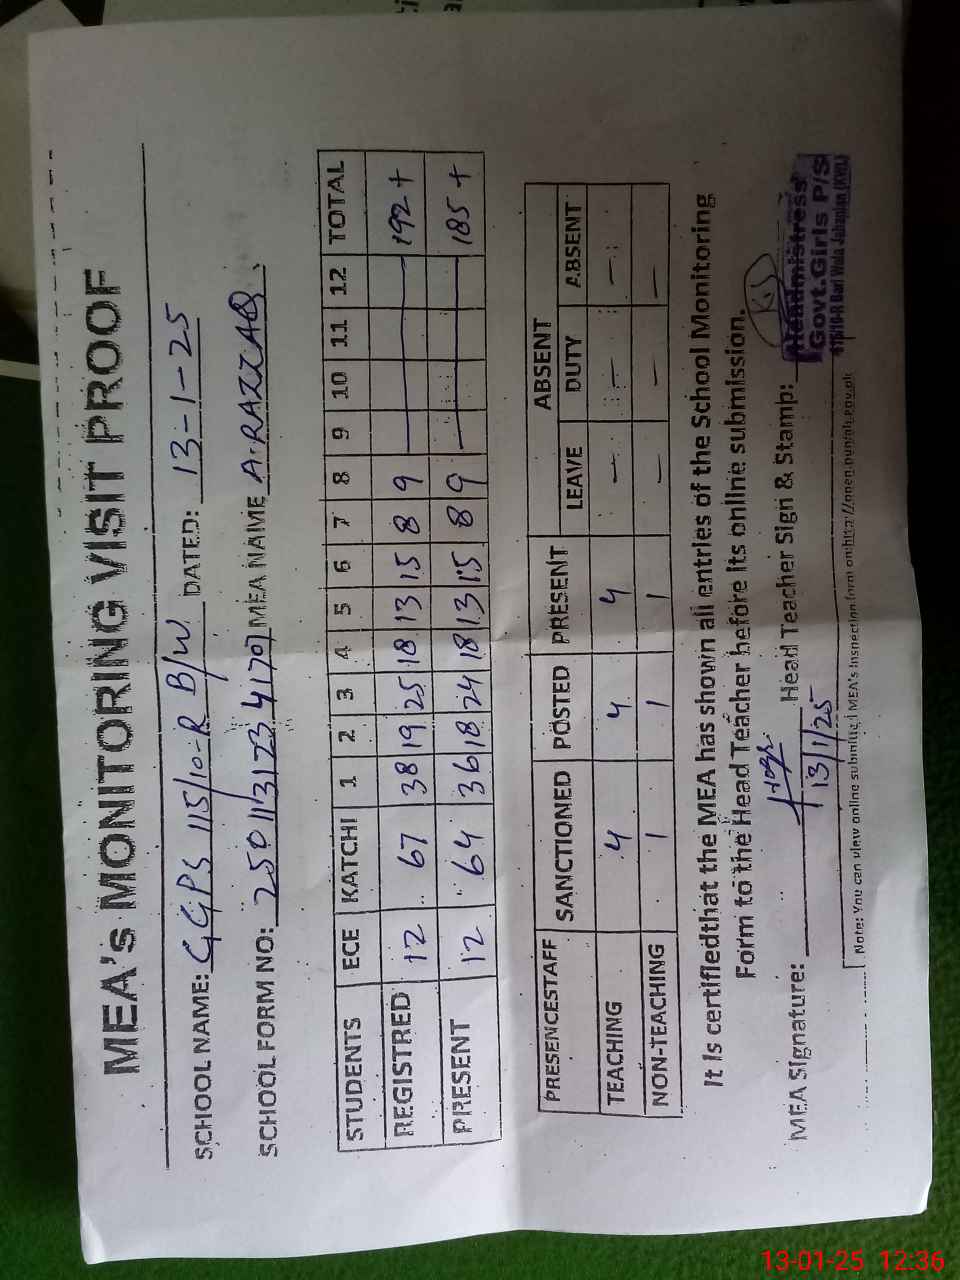 MEA's MONITORING VISIT PROOF
SCHOOL NAME: GGPS 115/10-R B/W DATED: 13-1-25
SCHOOL FORM NO: MEA NAME A.RAZZAQ
STUDENTS ECE KATCHI 1 2 3 4 5 6 7 8 9 10 11 12 TOTAL
REGISTRED 12 67 38 19 25 18 13 15 8 9 — 192+
PRESENT 12 64 36 18 24 18 13 15 8 9 — 185+
PRESENCESTAFF SANCTIONED POSTED PRESENT ABSENT
LEAVE DUTY ABSENT
TEACHING 4 4 4 — — —
NON-TEACHING 1 1 1 — — —
It Is certifiedthat the MEA has shown all entries of the School Monitoring
Form to the Head Teacher before Its online submission.
MEA Signature: Head Teacher Sign & Stamp:
13/1/25
Headmistress
Govt.Girls P/S
115/10-R Bari Wala Jahanian (KWL)
Note: You can view online submitted MEA's Inspection form on:http://open.punjab.gov.pk
13-01-25 12:36